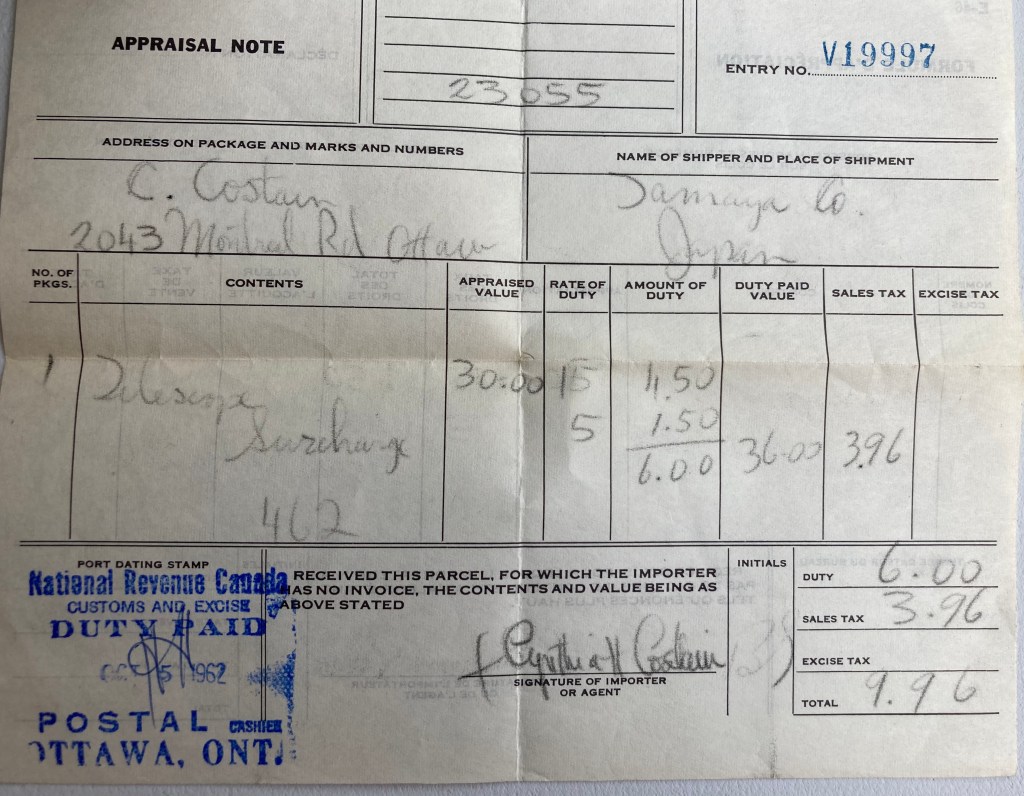 APPRAISAL NOTE
23055
ENTRY NO. V19997
ADDRESS ON PACKAGE AND MARKS AND NUMBERS
C. Costain
2043 Montreal Rd Ottawa
NAME OF SHIPPER AND PLACE OF SHIPMENT
Tamaya Co.
Japan
NO. OF PKGS. CONTENTS APPRAISED VALUE RATE OF DUTY AMOUNT OF DUTY DUTY PAID VALUE SALES TAX EXCISE TAX
1 Telescope 30.00 15 4.50
Surcharge 5 1.50
6.00 36.00 3.96
462
PORT DATING STAMP
National Revenue Canada
CUSTOMS AND EXCISE
DUTY PAID
OCT 5 1962
POSTAL CASHIER
OTTAWA, ONT.
RECEIVED THIS PARCEL, FOR WHICH THE IMPORTER
HAS NO INVOICE, THE CONTENTS AND VALUE BEING AS
ABOVE STATED
Cynthia H Costain
SIGNATURE OF IMPORTER
OR AGENT
INITIALS
DUTY 6.00
SALES TAX 3.96
EXCISE TAX
TOTAL 9.96